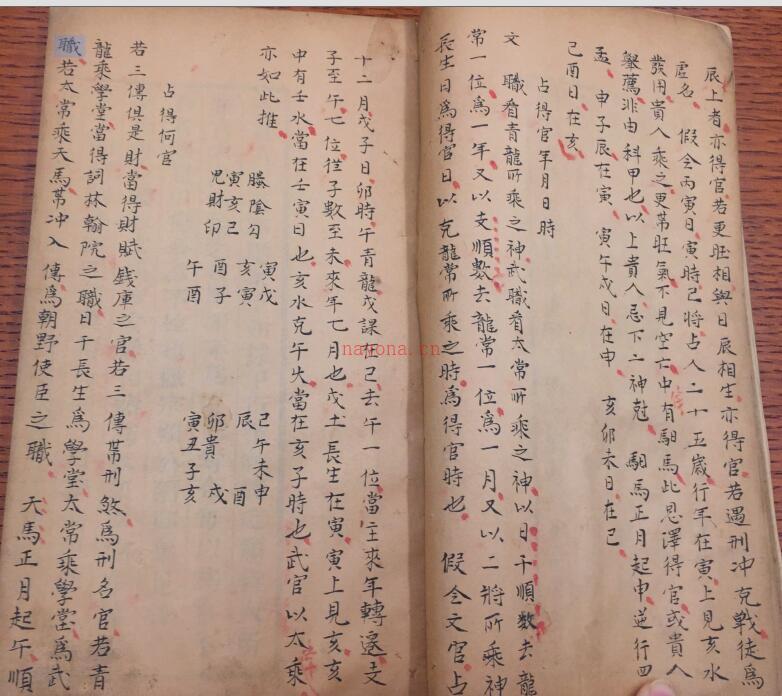 辰上者亦得官若更旺相與日辰相生亦得官若遇刑冲克戰徒為
虛名 假令丙寅日寅時已將占人二十五歲行年在寅上見亥水
發用貴人乘之更帶旺氣不見空亡中有馹馬此恩澤得官或貴人
舉薦非由科甲也以上貴人忌下二神尅 馹馬正月起申逆行四
孟 申子辰在寅 寅午戌日在申 亥卯未日在巳
巳酉日在亥
占得官年月日時
文 職看青龍所乘之神武職看太常所乘之神以日干順數去龍
常一位為一年又以支順數去龍常一位為一月又以二將所乘神
長生日為得官日以克龍常所乘之時為得官時也 假令文官占
十二月戊子日卯時午青龍戌課在巳去午一位當主來年轉遷支
子至午七位從子數至未來年七月也戊土長生在寅寅上見亥亥
中有壬水當在壬寅日也亥水克午火當在亥子時也武官以太乘
亦如此推
螣陰勾
寅亥巳
兄財印
寅戌
亥寅
酉子
午酉
巳午未申
辰 酉
卯貴 戌
寅丑子亥
占得何官
若三傳俱是財當得財賦錢庫之官若三傳帶刑煞為刑名官若青
龍乘學堂當得詞林翰院之職日干長生為學堂太常乘學堂為武
職若太常乘天馬帶冲入傳為朝野使臣之職 天馬正月起午順
nayona.cn